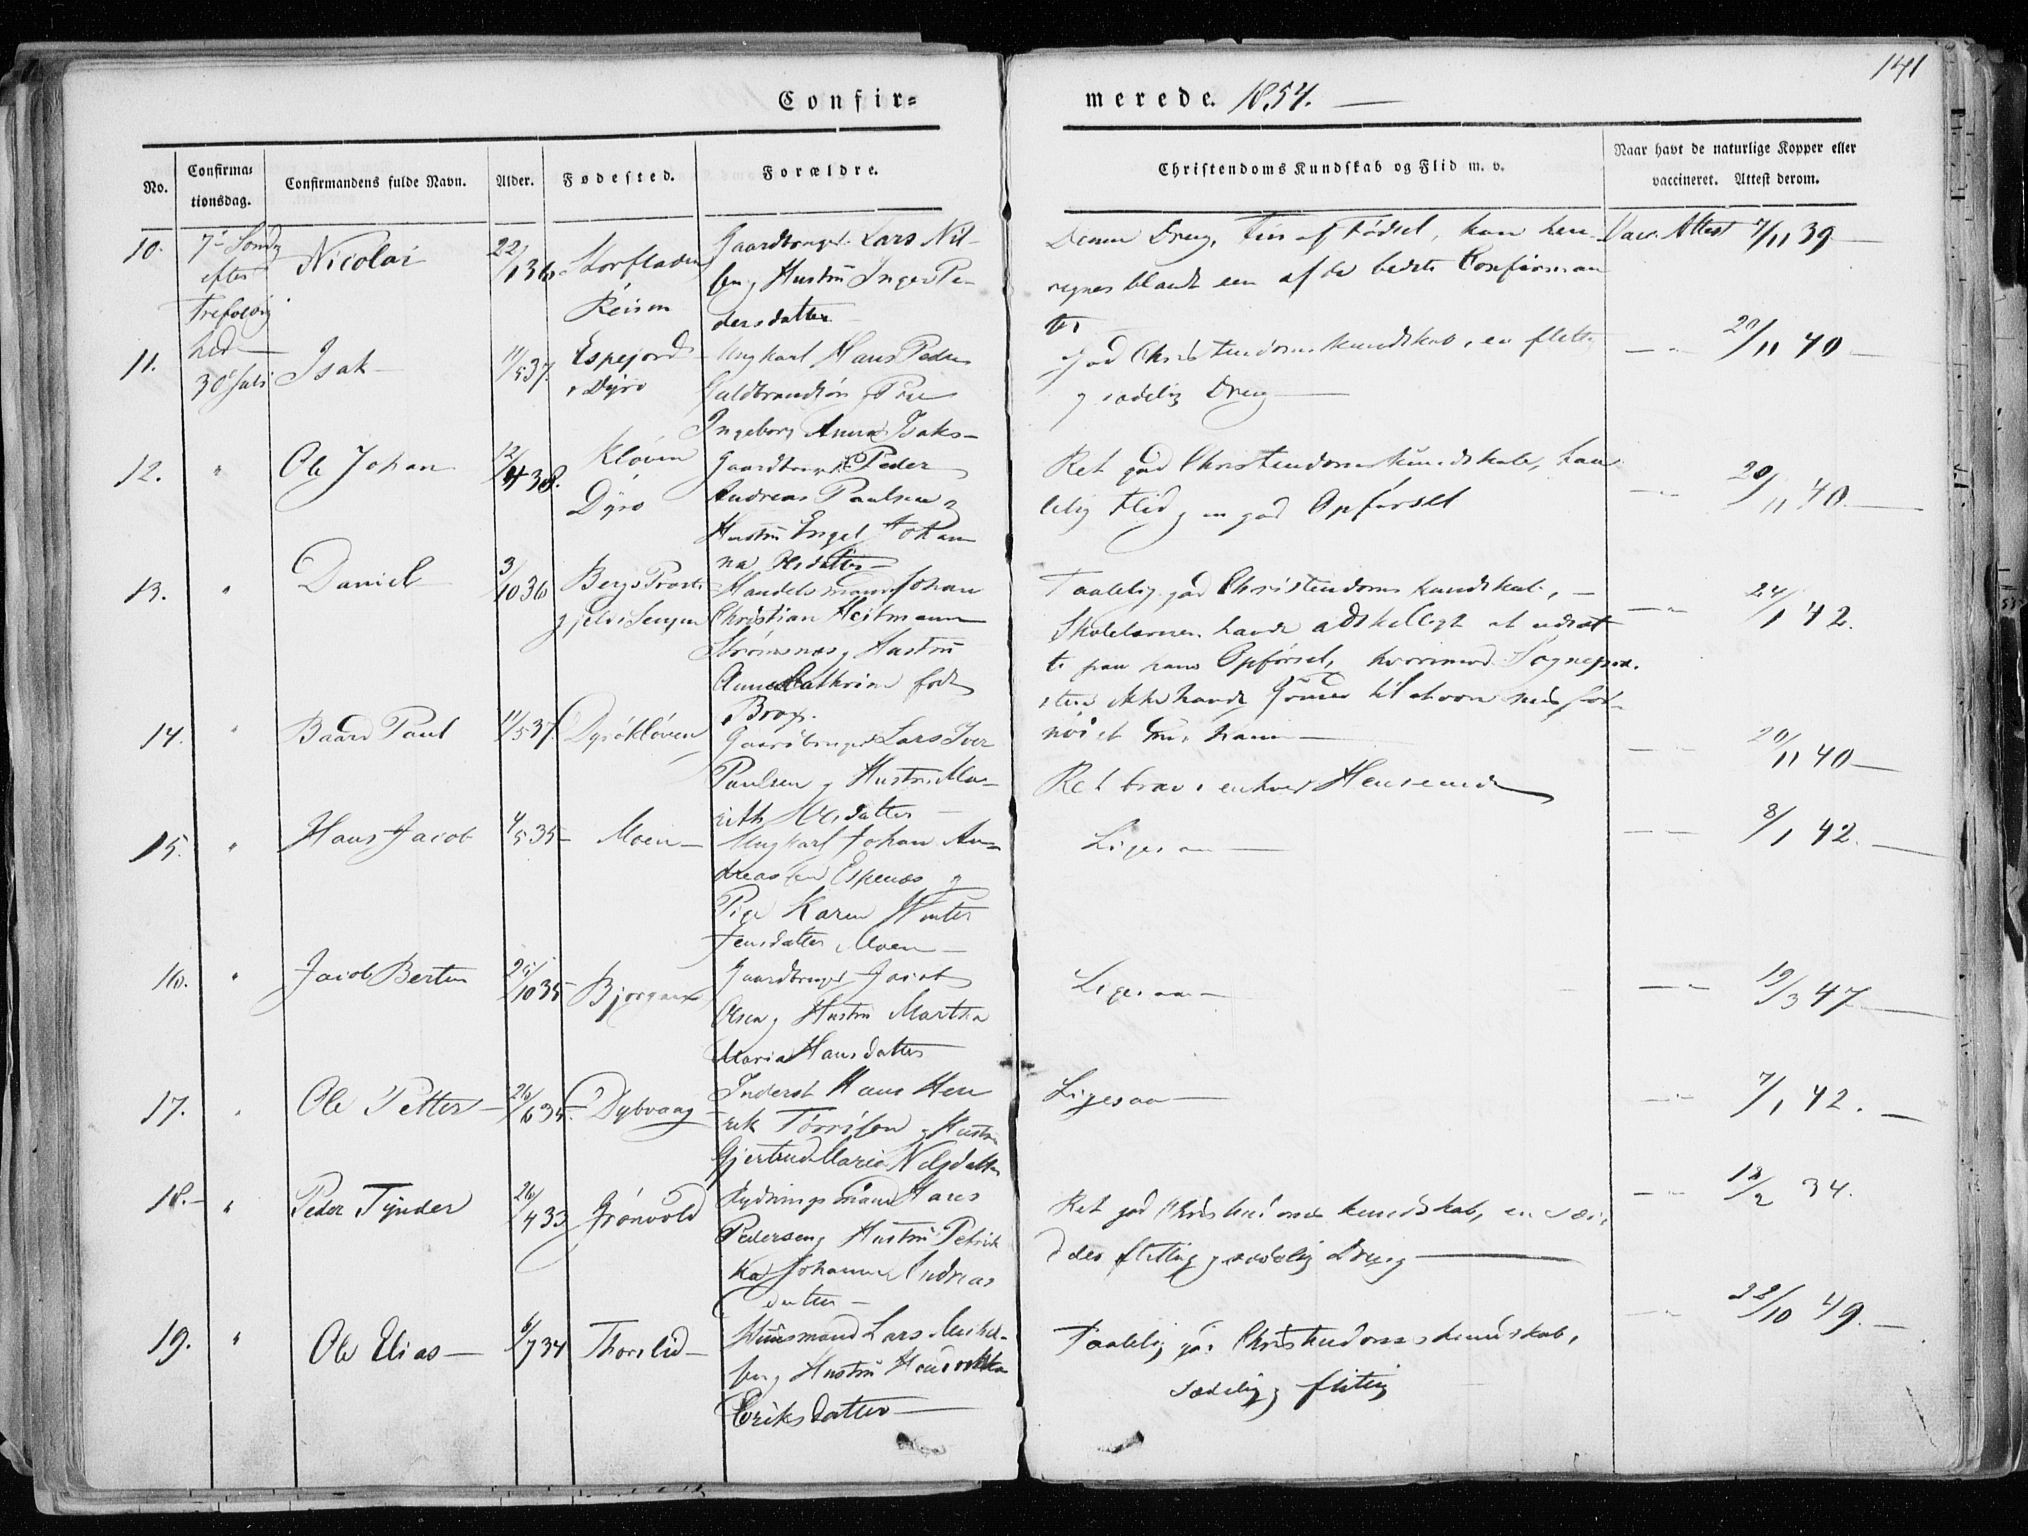 141
Confir= merede. 1854.
No. Confirmationsdag. Confirmandens fulde Navn. Alder. Fødested. Forældre. Christendoms Kundskab og Flid m. v. Naar havt de naturlige Kopper eller vaccineret. Attest derom.
10. 7de Sondg Nicolai 22/1 36 Gaardbruger Lars Nil-
efter Reisen sen og Hustrü Inger Pe-
Trefoldig dersdatter
regnes blandt een af de bedste Confirman
ter
Vac. Attest 7/11 39
hed
30 Juli
11. Isak 11/5 37. Espejord Ungkarl Hans Peder
i Dyrø Guldbrandsøn og Pige
Ingeborg Anna Isaks-
God Christendomskundskab, en flittig
og sædelig Dreng
20/11 40
12. " Ole Johan 12/4 38. Kløven Gaardbruger Peder
Dyrø Andreas Paulsen og
Hustrü Engel Johan
na Olsdatter
Ret god Christendomskundskab,
Flid og en god Opførsel
20/11 40.
13. " Daniel 3/10 36 Bergs Præste Handelsmand Johan
gjeld i Senjen Christian Heitmann
Strømsnes og Hustrü
Anne Cathrine født
Brox.
Taalelig god Christendomskundskab,
Skolelæreren havde adskelligt at udsæt
te paa hans Opførsel, hvorimod Sognepræ-
sten ikke havde Grund til at være misfor-
nøiet med ham
24/1 42.
14. " Baard Paul 11/5 37 Dyrøkløven Gaardbruger Lars Iver
Paulsen og Hustrü Ma-
rith Olsdatter
Ret brav i enhver Henseende
20/11 40
15. " Hans Jacob 4/5 35 Moen Ungkarl Johan An-
dreassen Espenæs og
Pige Karen
Jensdatter Moen
Ligesaa
8/1 42.
16. " Jacob Berten 25/10 35 Bjorgaa Gaardbruger Jacob
Olsen og Hustrü Martha
Maria Hansdatter
Ligesaa
19/3 47
17. " Ole Petter 26/6 35. Dybvaag Inderst Hans Hen
rik Torrisen og Hustrü
Gjertrud Marie Nilsdatter
Ligesaa
7/1 42.
18. " Peder Tynder 26/4 33 Grønvold Rydningsmand Hans
Pedersen og Hustrü Petrik
ka Johanna Andreas
datter
Ret god Christendoms kundskab, en sær
deles flittig og sædelig Dreng
18/2 34.
19. " Ole Elias 6/7 34 Thorslid Huusmand Lars Mikkel-
sen og Hustrü Hendrikka
Eriksdatter
Taalelig god Christendomskundskab,
sædelig og flitig
22/10 49.